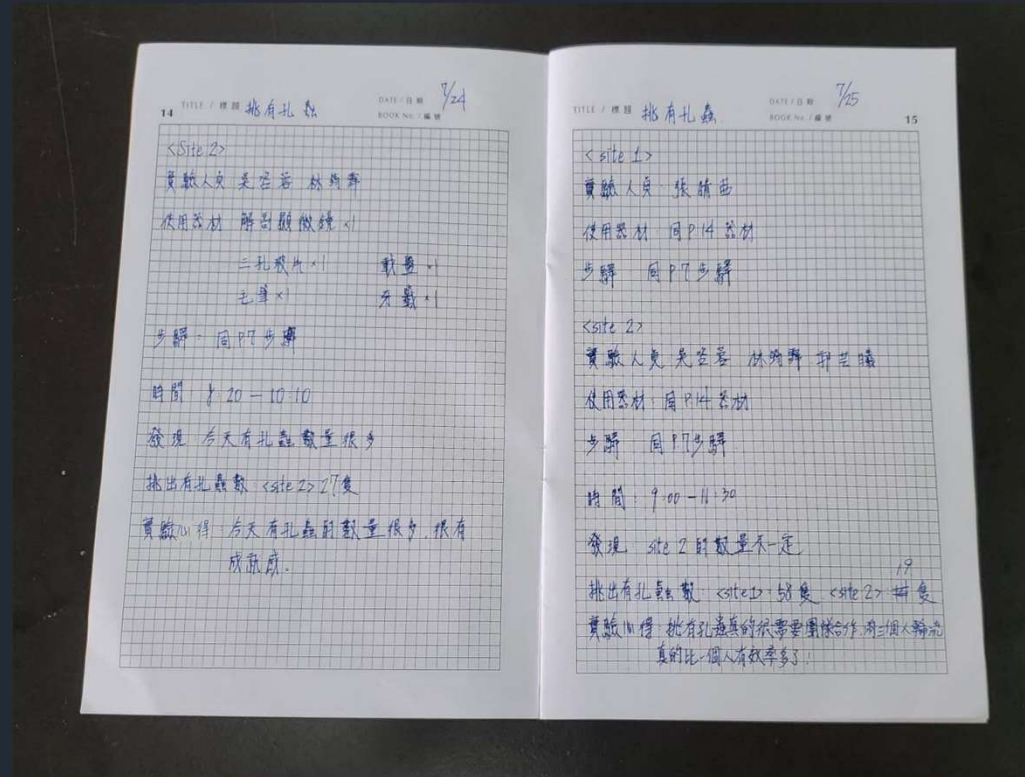 14 TITLE / 標題 挑有孔蟲 DATE / 日期 7/24
BOOK No. / 編號
<Site 2>
實驗人員 吳
使用器材 解剖顯微鏡×1
三孔玻片×1 軟盤×1
毛筆×1 牙籤×1
步驟: 同P7步驟
時間 8:20—10:10
發現 今天有孔蟲數量很多
挑出有孔蟲數 <site 2> 27隻
實驗心得:今天有孔蟲的數量很多,很有
成就感.
TITLE / 標題 挑有孔蟲 DATE / 日期 7/25
BOOK No. / 編號 15
<site 1>
實驗人員 張
使用器材 同P.14器材
步驟 同P7步驟
<site 2>
實驗人員 吳
使用器材:同P.14器材
步驟 同P7步驟
時間:9:00—11:30
發現 site 2的數量不一定
19
挑出有孔蟲數:<site1>:58隻 <site 2> 隻
實驗心得:挑有孔蟲真的很需要團隊合作,有三個人輪流
真的比一個人有效率多了!